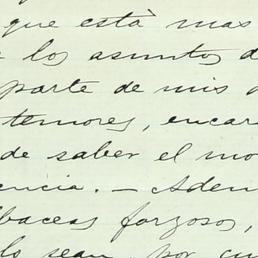 que està mas
los asuntos d
parte de mis
temores, encar
de saber el mo
encia. — Adem
baceas forzosos,
lo sean, por cu